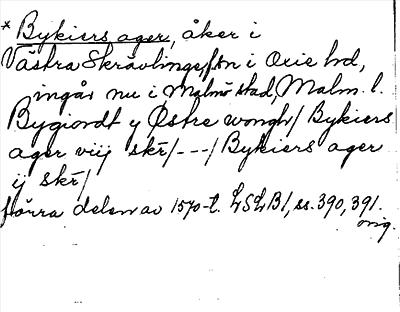 * Bykiers ager, åker i
Västra Skrävlinge fsn i Oxie hd,
ingår nu i Malmö stad, Malm. l.
Bygiordt y Østre wongh/ Bykiers
ager viij skr/---/ Bykiers ager
ij skr/
förra delen av 1570-t. LSLB1, ss. 390, 391.
orig.